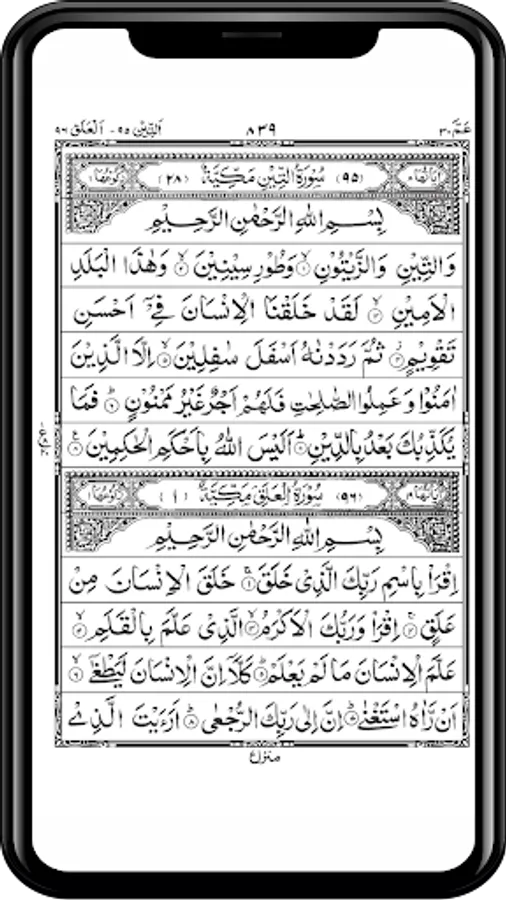 عَمَّ ٣٠
٨٣٩
اَلتِّيْن ٩٥ - اَلْعَلَق ٩٦
اٰيَاتُهَا ٨ (٩٥) سُوْرَةُ التِّيْنِ مَكِّيَّةٌ (٢٨) رُكُوْعُهَا ١
بِسْمِ اللّٰهِ الرَّحْمٰنِ الرَّحِيْمِ
وَالتِّيْنِ وَالزَّيْتُوْنِ ۙ١ وَطُوْرِ سِيْنِيْنَ ۙ٢ وَهٰذَا الْبَلَدِ
الْاَمِيْنِ ۙ٣ لَقَدْ خَلَقْنَا الْاِنْسَانَ فِيْٓ اَحْسَنِ
تَقْوِيْمٍ ۫٤ ثُمَّ رَدَدْنٰهُ اَسْفَلَ سٰفِلِيْنَ ۙ٥ اِلَّا الَّذِيْنَ
اٰمَنُوْا وَعَمِلُوا الصّٰلِحٰتِ فَلَهُمْ اَجْرٌ غَيْرُ مَمْنُوْنٍ ؕ٦ فَمَا
يُكَذِّبُكَ بَعْدُ بِالدِّيْنِ ؕ٧ اَلَيْسَ اللّٰهُ بِاَحْكَمِ الْحٰكِمِيْنَ ٨
اٰيَاتُهَا (٩٦) سُوْرَةُ الْعَلَقِ مَكِّيَّةٌ (١) رُكُوْعُهَا ١
بِسْمِ اللّٰهِ الرَّحْمٰنِ الرَّحِيْمِ
اِقْرَاْ بِاسْمِ رَبِّكَ الَّذِيْ خَلَقَ ۚ١ خَلَقَ الْاِنْسَانَ مِنْ
عَلَقٍ ۚ٢ اِقْرَاْ وَرَبُّكَ الْاَكْرَمُ ۙ٣ الَّذِيْ عَلَّمَ بِالْقَلَمِ ۙ٤
عَلَّمَ الْاِنْسَانَ مَا لَمْ يَعْلَمْ ؕ٥ كَلَّآ اِنَّ الْاِنْسَانَ لَيَطْغٰٓى ۙ٦
اَنْ رَّاٰهُ اسْتَغْنٰى ؕ٧ اِنَّ اِلٰى رَبِّكَ الرُّجْعٰى ؕ٨ اَرَءَيْتَ الَّذِيْ